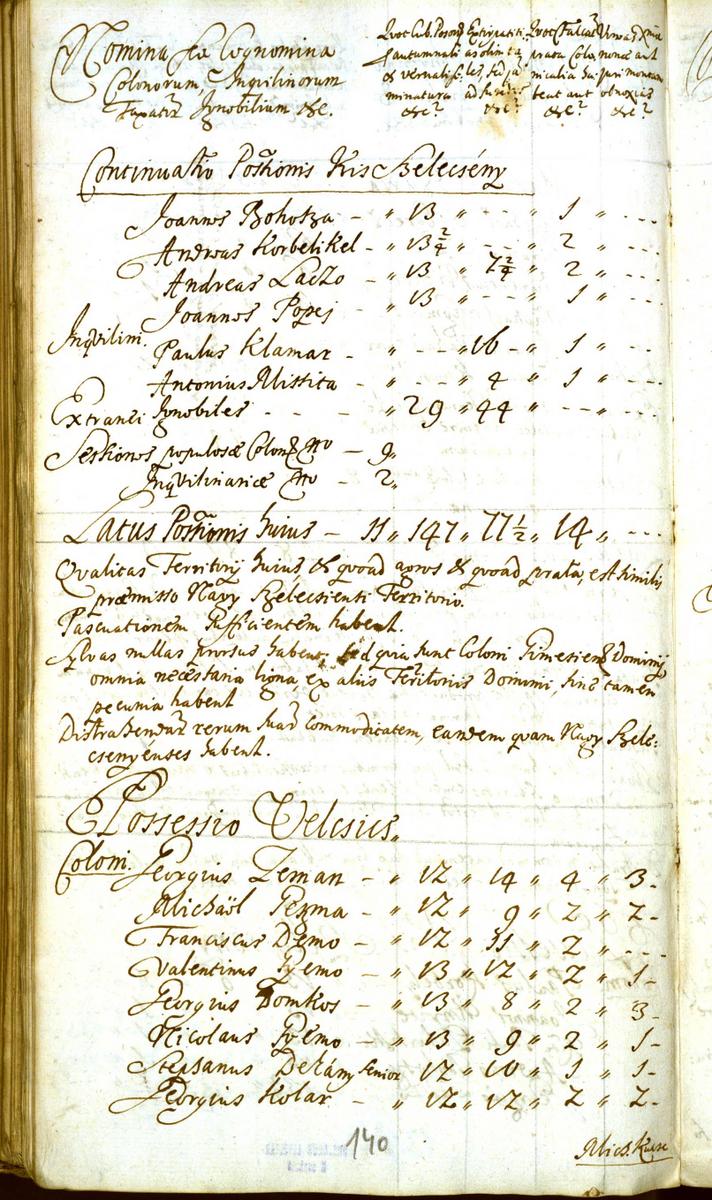 Nomina seu Cognomina
Colonorum, Inquilinorum
Taxatr Ignobilium &c.
Quot Cub. Poson
autumnali
& vernali
minatura
&c?
Extirpatiti
&c?
Quot Falcar
prata
&c?
&c?
Continuatio Possionis Kis Szelecsény
Joannes Bohotza – " 13 " -- " 1 " ---
Andreas Korbelikel – " 13 2/4 " -- " 2 " ---
Andreas Laczo – " 13 " 7 2/4 " 2 " ---
Joannes Popej " 13 " -- " 1 " ---
Inqvilini. Paulus Klamar – " -- " 16 - " 1 " ---
Antonius Missita – " -- " 4 " 1 " ---
Extranei Ignobiles - - – " 29 " 44 " -- " ---
Sessiones populosæ Colon No – 9 "
Inqvilinaricæ No – 2 "
Latus Possionis huius – 11 " 147 " 77 1/2 " 14 " ---
Qvalitas Territorij huius, & qvoad agros & qvoad prata, est similis
præmisso Nagy Szelecsienti Territorio.
Pascuationem sufficientem habent.
Sylvas nullas prorsus habent, sed quia sunt Coloni Gimesiens Dominij,
omnia necessaria ligna, ex aliis Territoriis Dominii, sine tamen
pecunia habent
Distrahendar rerum suar commoditatem, eandem quam Nagy Szele:
csenyenses habent.
Possessio Velcsics "
Coloni. Georgius Zeman – " 12 " 14 " 4 " 3 -
Michaël Pezma – " 12 " 9 " 2 " 2 -
Franciscus Demo – " 12 " 11 " 2 " ---
Valentinus Gyemo " 13 " 12 " 2 " 1 -
Georgius Domkos " 13 " 8 " 2 " 3 -
Nicolaus Gyemo " 13 " 9 " 2 " 1 -
Stephanus Dekány Senior 12 " 10 " 1 " 1 -
Georgius Kolar – " 12 " 12 " 2 " 2 -
140
Mich. Kucse